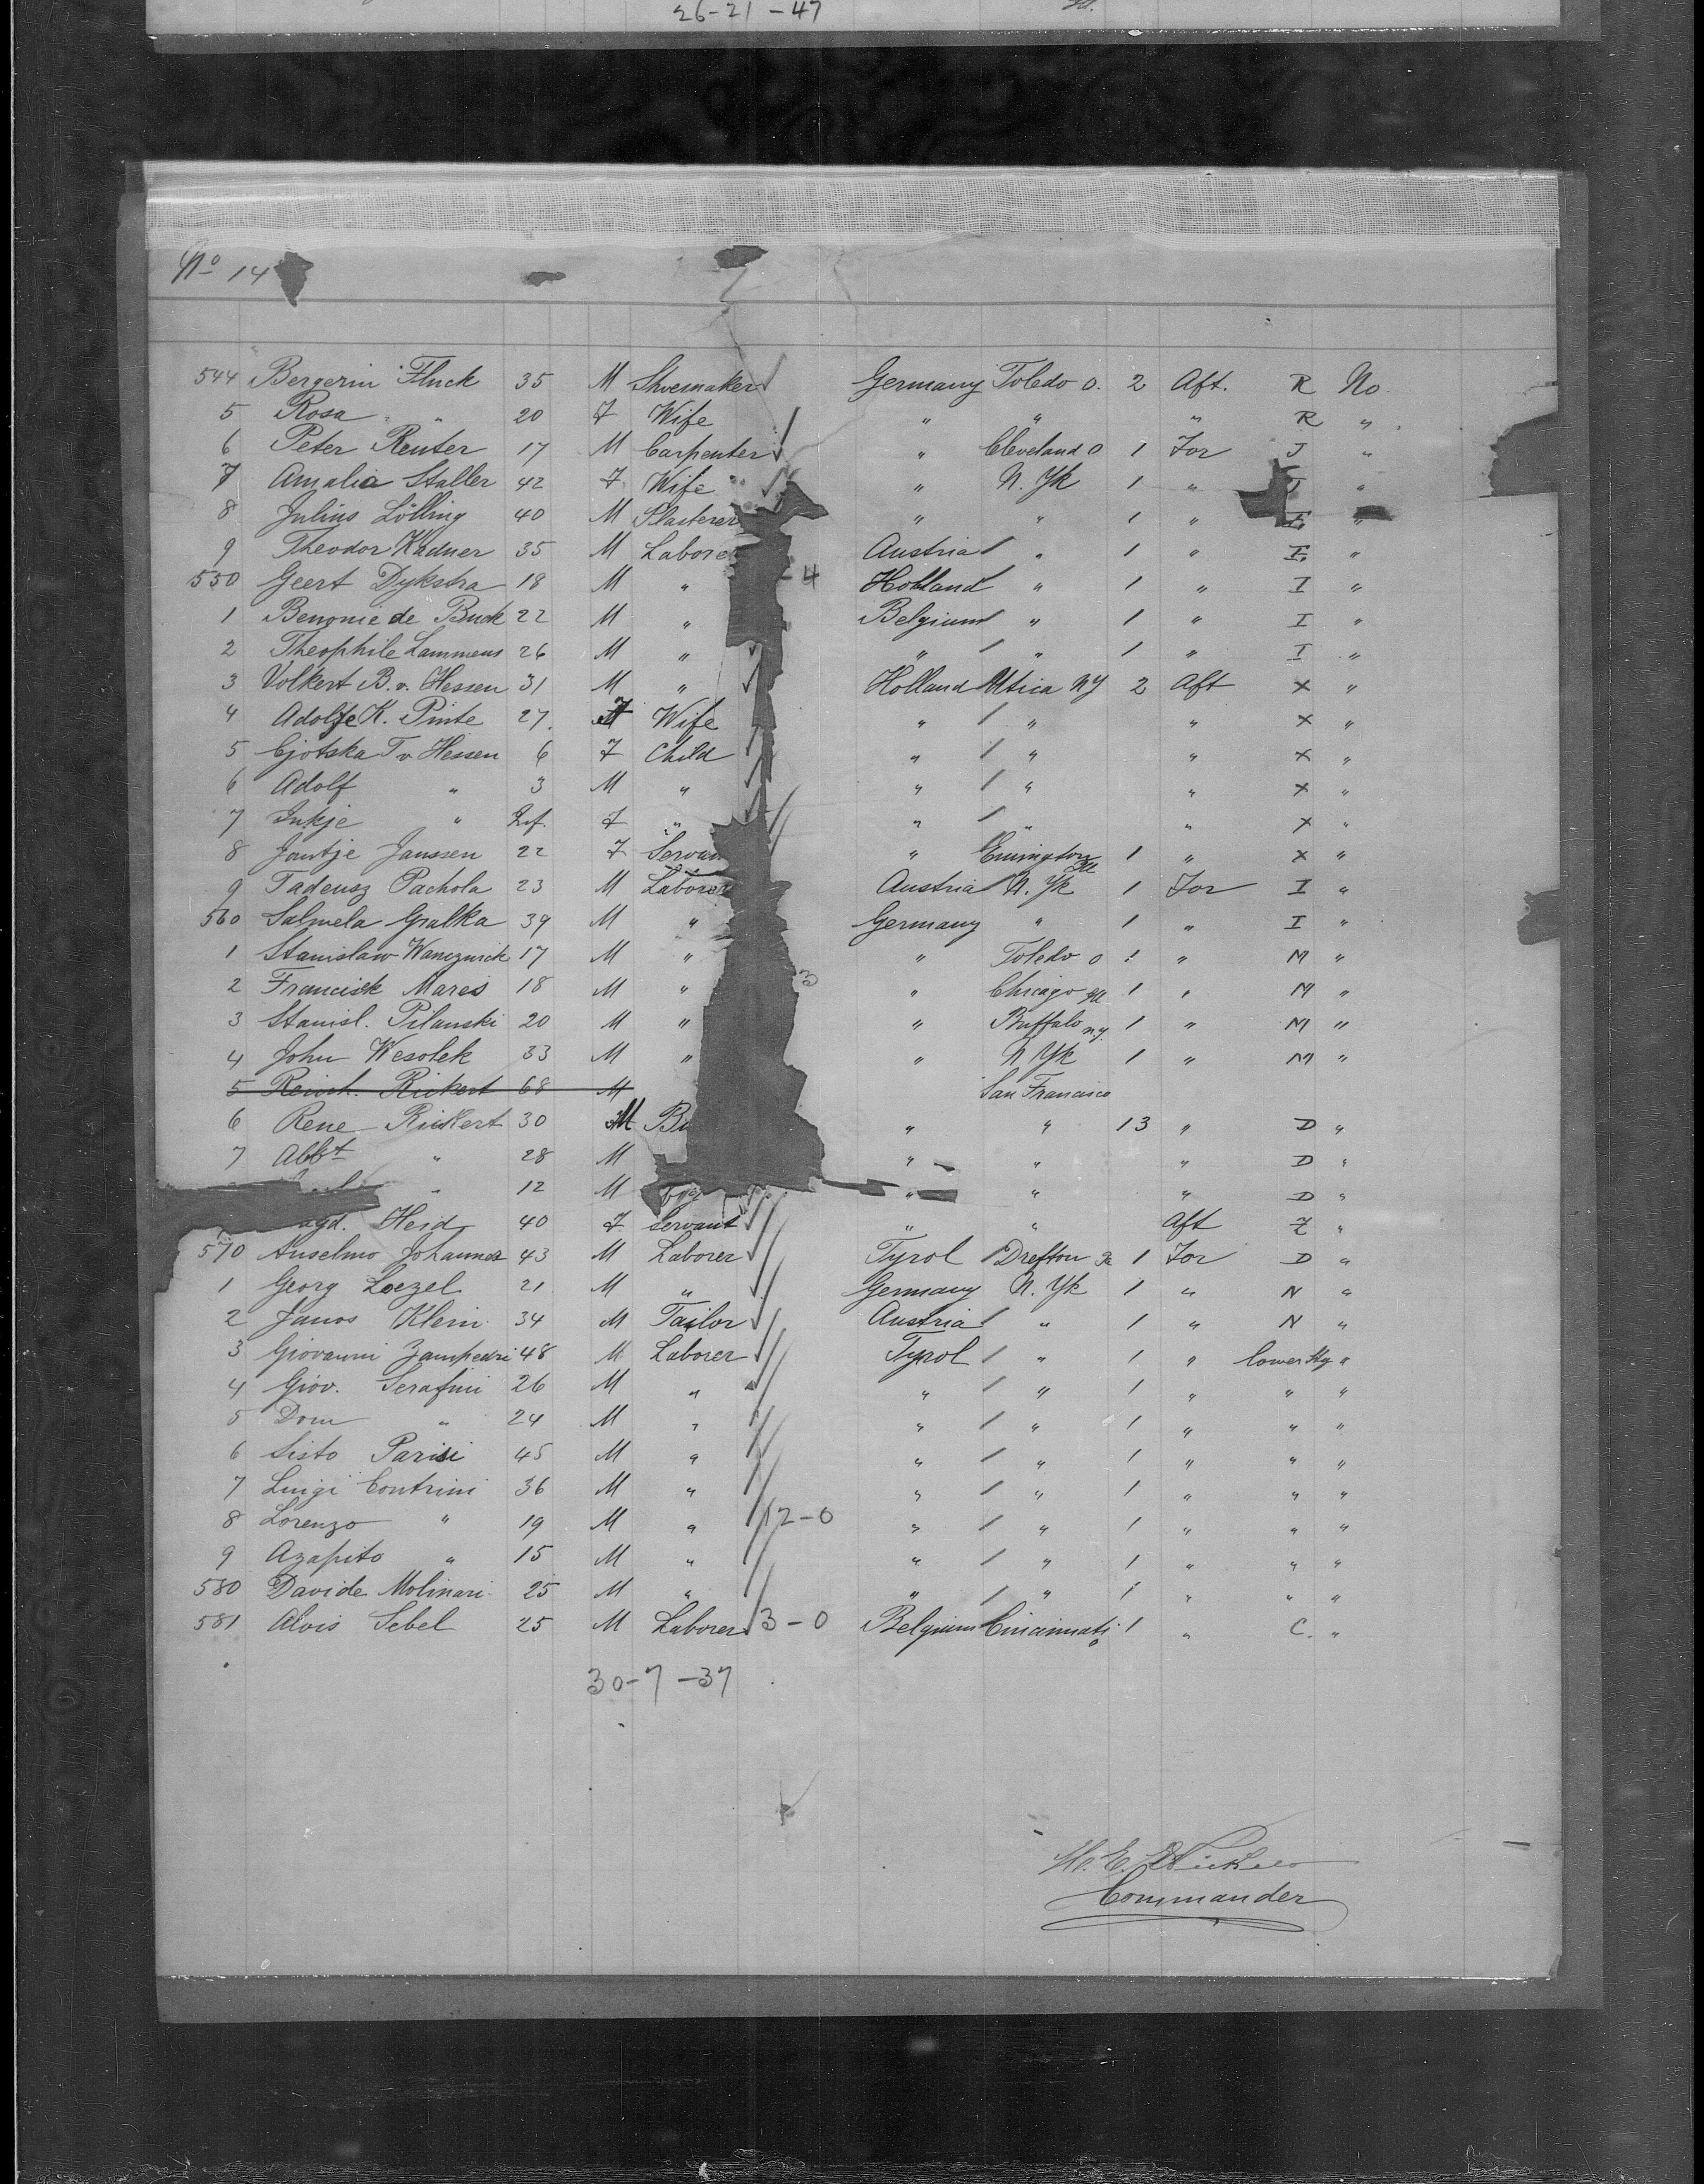 26-21-47
No 14
544 Bergerin Fluck 35 M Shoemaker Germany Toledo O. 2 Aft. R No.
5 Rosa " 20 F Wife " " " R "
6 Peter Reuter 17 M Carpenter " Cleveland O 1 For J "
7 Amalia Staller 42 F Wife " N. Yk 1 " "
8 Julius Lölling 40 M Plasterer " " 1 " I "
9 Theodor Kadner 35 M Laborer Austria " 1 " I "
550 Geert Dykstra 18 M " 4 Holland " 1 " I "
1 Benonie de Buck 22 M " Belgium " 1 " I "
2 Theophile Lammens 26 M " " " 1 " I "
3 Volkert B. v. Hessen 31 M " Holland Utica NY 2 Aft X "
4 Adolfe K. Pinte 27. F Wife " " " X "
5 Cjotska T v Hessen 6 F Child " " " X "
6 Adolf " 3 M " " " " X "
7 Inkje " Inf. F " " " " X "
8 Jantje Janssen 22 F Servan " Emington Ill 1 " X "
9 Tadeusz Pachola 23 M Laborer Austria N. Yk 1 For I "
560 Salmela Gralka 39 M " Germany " 1 " I "
1 Stanislaw Wancznick 17 M " " Toledo O 1 " M "
2 Francisek Mares 18 M " 3 " Chicago Ill 1 " M "
3 Stanisl. Pilanski 20 M " " Buffalo n.y. 1 " M "
4 John Wesolek 33 M " " N Yk 1 " M "
5 Reinh. Rickert 68 M San Francisco
6 Rene Rickert 30 M Bu " " 13 " D "
7 Abbt " 28 M " " " D "
" 12 M boy " " " D "
agd. Heid 40 F Servant " " Aft Z "
570 Anselmo Johannes 43 M Laborer Tyrol Drefton Pa 1 For D "
1 Georg Loezel 21 M " Germany N. Yk 1 " N "
2 Janos Klein 34 M Tailor Austria " 1 " N "
3 Giovanni Zampedri 48 M Laborer Tyrol " 1 " lower Stg "
4 Giov. Serafini 26 M " " " 1 " " "
5 Dom " 24 M " " " 1 " " "
6 Sisto Parisi 45 M " " " 1 " " "
7 Luigi Contrini 36 M " " " 1 " " "
8 Lorenzo " 19 M " 12-0 " " 1 " " "
9 Agapito " 15 M " " " 1 " " "
580 Davide Molinari 25 M " " " 1 " " "
581 Alois Sebel 25 M Laborer 3-0 Belgium Cincinnati O 1 " C. "
30-7-37
H. E. Nickels
Commander